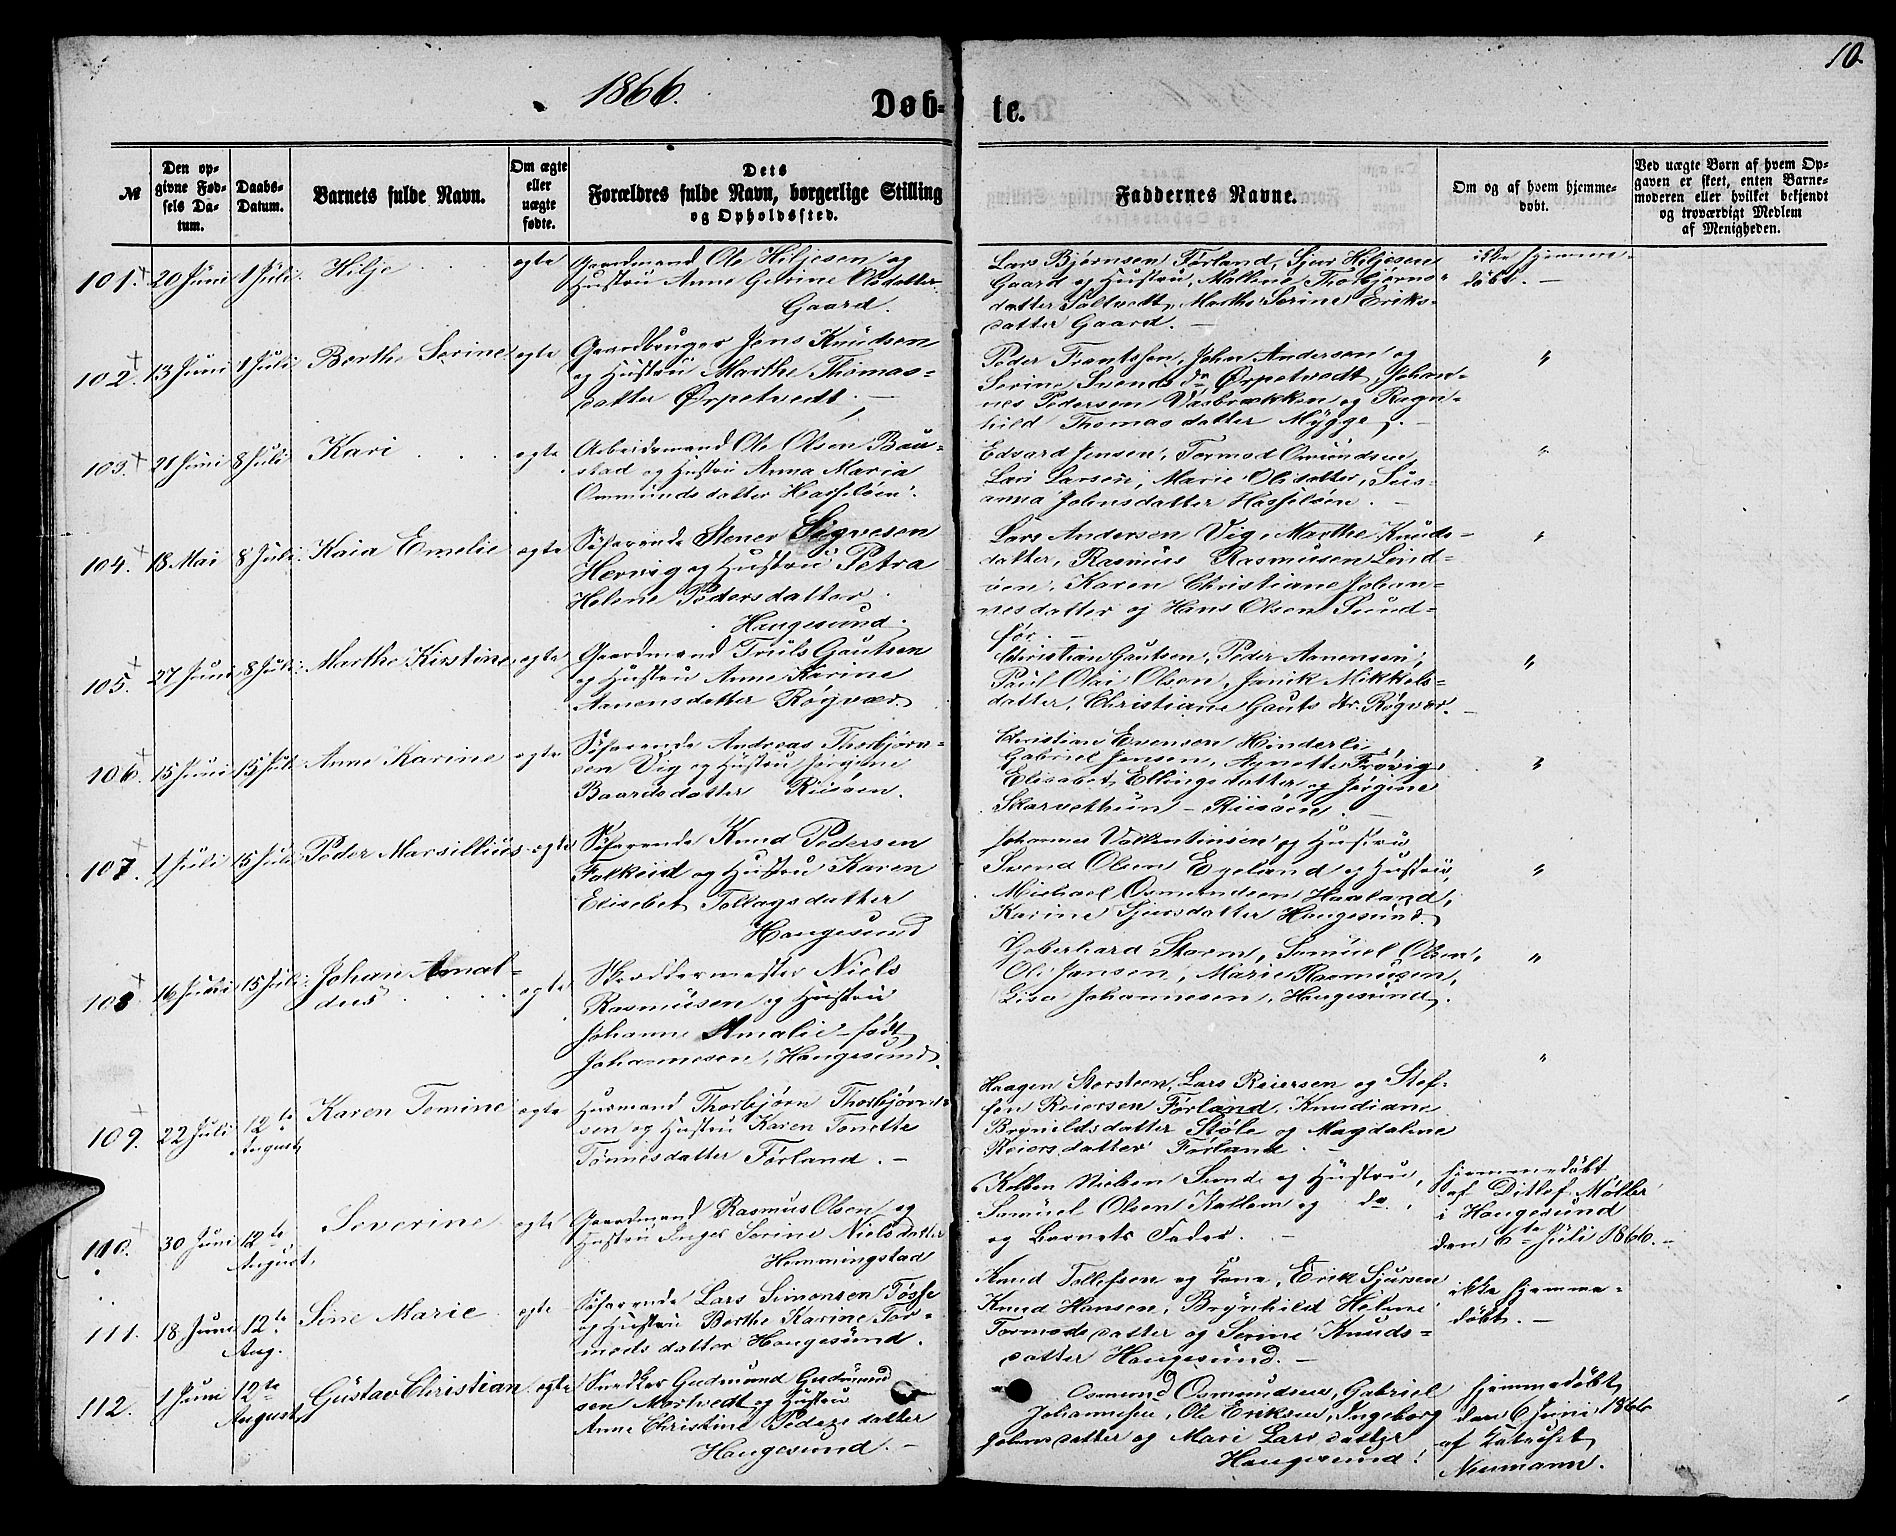 1866.
10
Døb-
te.
№
Den op-
givne Fød-
sels Da-
tum.
Daabs-
Datum.
Barnets fulde Navn.
Om ægte
eller
uægte
fødte.
Dets
Forældres fulde Navn, borgerlige Stilling
og Opholdssted.
Faddernes Navne.
Om og af hvem hjemme-
døbt.
Ved uægte Børn af hvem Op-
gaven er skeet, enten Barne-
moderen eller hvilket bekjendt
og troværdigt Medlem
af Menigheden.
101. 20 Juni 1 Juli Hilje egte
Gaardmand Ole Hiljesen og
Hustru Anne Gurine Olsdatter
Gaard.
Lars Bjørnsen Førland, Sjur Hiljesen
Gaard og Hustru, Mallene Thorbjørns-
datter Saltvedt, Marthe Serine Eriks-
datter Gaard. —
ikke hjemme-
døbt. —
102. 13 Juni 1 Juli Berthe Serine egte
Gaardbruger Jens Knudsen
og Hustru Marthe Thomas-
datter Ørpetvedt. —
Peder Frantssen, John Andersen og
Serine Svends dr Ørpetvedt, Johan-
nes Pedersen Vasbrækken og Ragn-
hild Thomasdatter Mygge. —
"
103. 21 Juni 8 Juli Kari egte
Arbeidsmand Ole Olsen Bau-
stad og Hustru Anna Maria
Osmundsdatter Hasseløen.
Edvard Jensen, Tormod Osmundsen,
Lars Larsen, Marie Olsdatter, Sus-
anna Johnsdatter Hasseløen. —
"
104. 18 Mai 8 Juli Kaia Emelie egte
Søfarende Stener Sigvesen
Hervig og Hustru Petra
Helene Pedersdatter.
Haugesund.
Lars Andersen Vig, Marthe Knuds-
datter, Rasmus Rasmussen Lind-
øen, Karen Christiane Johan-
nesdatter og Hans Olsen Sund-
før. —
"
105. 27 Juni 8 Juli Marthe Kirstine egte
Gaardmand Truls Gautsen
og Hustru Anne Karine
Aanensdatter Røgvær.
Christian Gautsen, Peder Aanensen,
Paul Olai Olsen, Janik Mikkels-
datter, Christiane Gauts dtr. Røgvær. —
"
106. 15 Juni 15 Juli Anne Karine egte
Søfarende Andreas Thorbjørn-
sen Vig og Hustru Jørgine
Baardsdatter Risøen.
Christian Evensen Hinderli,
Gabriel Jensen, Agnette Frøvig,
Elisabet Ellingsdatter og Jørgine
Skarvethun – Risøen. —
"
107. 1 Juli 15 Juli Peder Marsillius egte
Søfarende Knud Pedersen
Falkeid og Hustru Karen
Elisabet Tollagsdatter
Haugesund
Johannes Valentinsen og Hustru
Svend Olsen Egeland og Hustru,
Michael Osmundsen Haaland,
Karine Sjursdatter Haugesund.
"
108 16 Juni 15 Juli Johan Amal-
dus egte
Skræddermester Niels
Rasmussen og Hustru
Johanne Amalie født
Johannesen, Haugesund.
Storm, Samuel Olsen,
Ole Jansen, Marie Rasmussen,
Lisa Johannesen, Haugesund.
"
109. 22 Juli 12te
August
Karen Tomine egte
Husmand Thorbjørn Thorbjørn-
sen og Hustru Karen Tonette
Tønnesdatter Førland. —
Haagen Storsteen, Lars Reiersen og Stef-
fen Reiersen Førland, Knudiane
Brynildsdatter Støle og Magdalene
Reiersdatter Førland. —
"
110. 30 Juni 12te
August,
Severine egte
Gaardmand Rasmus Olsen og
Hustru Inger Serine Nielsdatter
Hemmingstad
Kolben Nielsen Sund og Hustru,
Samuel Olsen Kallem og do.
og Barnets Fader. —
hjemmedøbt
af Ditlef Møller
i Haugesund
den 6te Juli 1866. —
111. 18 Juni 12te
Aug.
Sine Marie egte
Søfarende Lars Simonsen Tosse
og Hustru Berthe Karine Tor-
modsdatter Haugesund.
Knud Tollefsen og Kone, Erik Sjursen
Knud Hansen, Brynhild Helene
Tormodsdatter og Serine Knuds-
datter Haugesund. —
ikke hjemme-
døbt. —
112. 1 Juni 12te
August
Gustav Christian egte
Snedker Gudmund Gudmund
sen Mortvedt og Hustru
Anne Christine Peders datter
Haugesund. —
Osmund Osmundsen, Gabriel
Johannesen, Ole Eriksen, Ingeborg
Johnsdatter og Mari Lars datter
Haugesund.
hjemmedøbt
den 6 Juni 1866
af Katechet
Neumann.